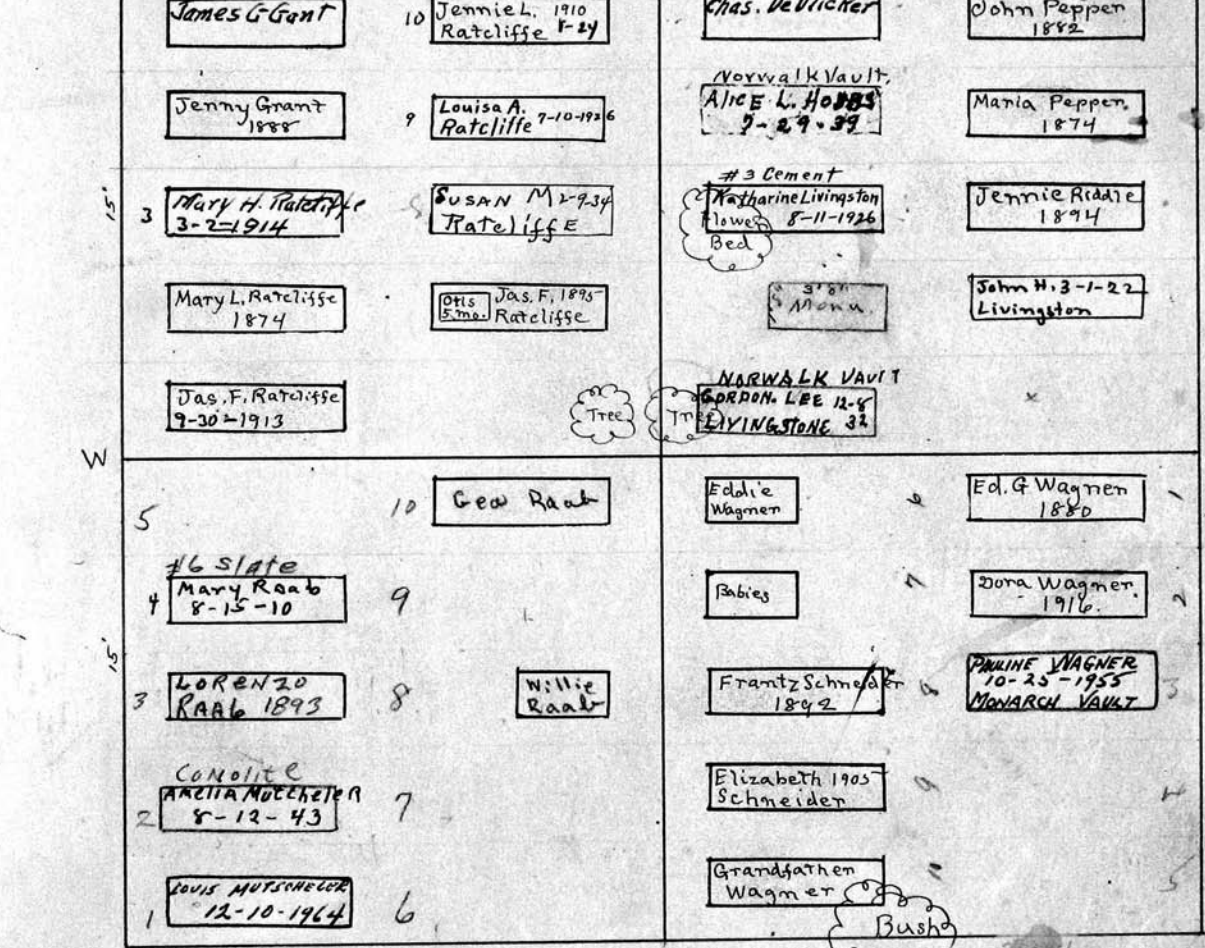 James G Gant
10 Jennie L. 1910
Ratcliffe 8-24
Chas. DeVricker
John Pepper
1882
Jenny Grant
1888
9 Louisa A.
Ratcliffe 7-10-1926
Norwalk Vault.
Alice L. Hobbs
7-29-39
Maria Pepper.
1874
15'
3 Mary H. Ratcliffe
3-2-1914
8 Susan M 2-9-34
Ratcliffe
#3 Cement
Katharine Livingston
8-11-1926
Flower
Bed
Jennie Riddle
1894
Mary L. Ratcliffe
1874
Otis
5 mo.
Jas. F. 1895
Ratcliffe
3'8"
Monu.
John H. 3-1-22
Livingston
Jas. F. Ratcliffe
9-30-1913
Tree
Tree
NORWALK VAULT
GORDON. LEE 12-8
LIVINGSTONE 32
W
5
10 Geo Raab
Eddie
Wagner
6
Ed. G Wagner
1880
1
#6 Slate
4 Mary Raab
8-15-10
9
Babies
7
Dora Wagner.
1916.
2
15'
3 LORENZO
RAAb 1893
8
Willie
Raab
Frantz Schneider
1892
8
PAULINE WAGNER
10-25-1955
MONARCH VAULT
3
Conolite
2 AMELIA MUTCHELER
8-12-43
7
Elizabeth 1905
Schneider
9
4
1 LOUIS MUTSCHELER
12-10-1964
6
Grandfather
Wagner
Bush
5